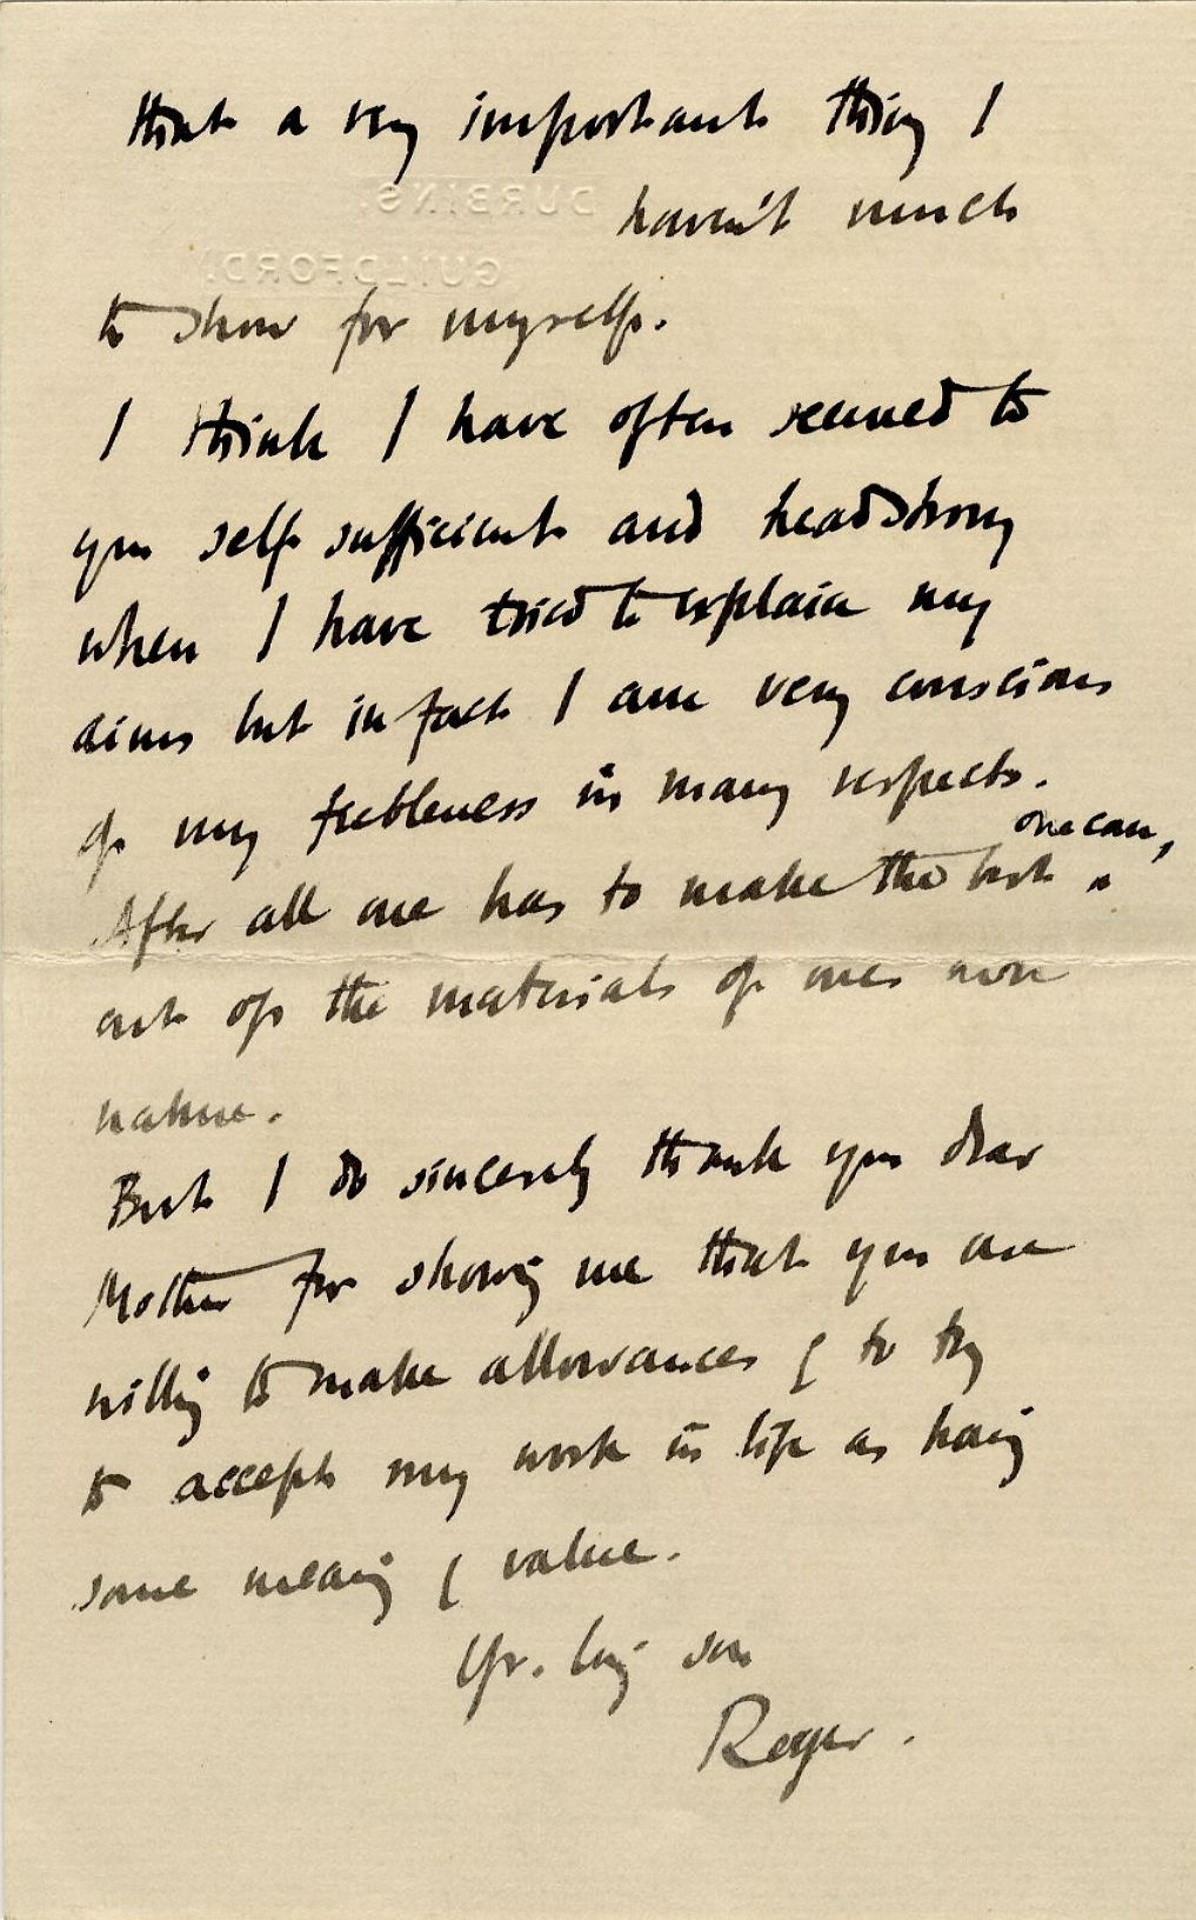 that a very important thing I
DURBINS,
haven't much
GUILDFORD.
to show for myself.
I think I have often seemed to
you self sufficient and headstrong
when I have tried to explain my
aims but in fact I am very conscious
of my feebleness in many respects.
one can,
After all one has to make the best
out of the materials of ones own
nature.
But I do sincerely thank you dear
Mother for showing me that you are
willing to make allowances & to try
to accept my work in life as having
some meaning & value.
Yr. loving son
Roger.